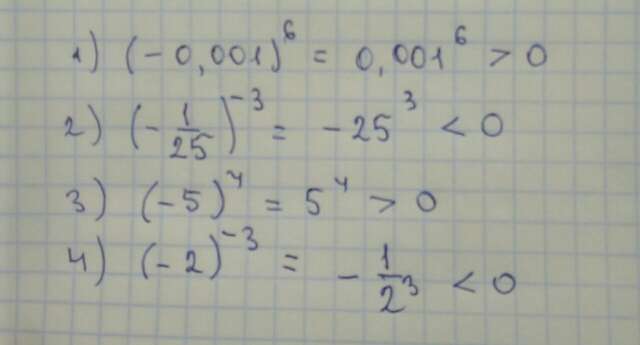 1) (-0,001)⁶ = 0,001⁶ > 0
2) (-1/25)⁻³ = -25³ < 0
3) (-5)⁴ = 5⁴ > 0
4) (-2)⁻³ = -1/2³ < 0